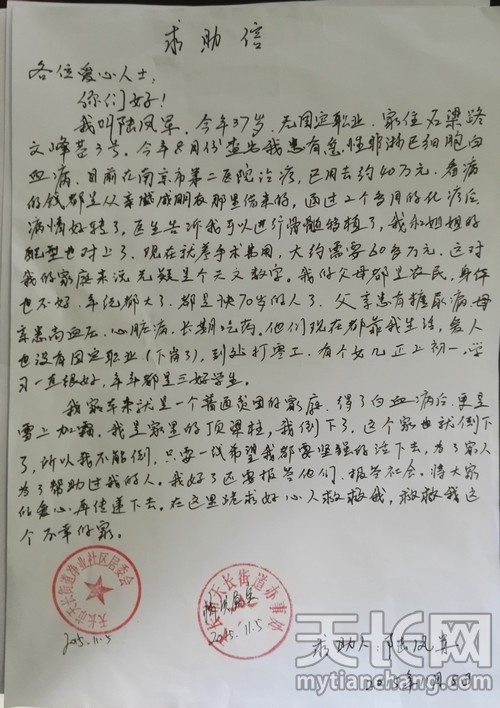 求助信
各位爱心人士:
你们好!
我叫陆凤军，今年37岁，无固定职业，家住石梁路
文峰巷3号。今年8月份查出我患有急性非淋巴细胞白
血病，目前在南京市第二医院治疗，已用去约40万元，看病
的钱都是从亲戚朋友那里借来的，通过2个多月的化疗后
病情好转了，医生告诉我可以进行骨髓移植了，我和姐姐的
配型也对上了，现在就差手术费用，大约需要60多万元，这对
我的家庭来说无疑是个天文数字。我的父母都是农民，身体
也不好，年纪都大了，都是快70岁的人了，父亲患有糖尿病，母
亲患高血压、心脏病，长期吃药。他们现在都靠我生活，爱人
也没有固定职业(下岗了)，到处打零工，有个女儿正上初一，学
习一直很好，年年都是三好学生。
我家本来就是一个普通贫困的家庭，得了白血病后，更是
雪上加霜，我是家里的顶梁柱，我倒下了，这个家也就倒下
了，所以我不能倒，只要一线希望我都要坚强的活下去，为了家人
为了帮助过我的人。我好了还要报答他们，报答社会，将大家
的爱心再传递下去。在这里跪求好心人救救我，救救我这
个不幸的家。
天长市天长街道净业社区居委会
2015.11.5
天长街道办事处
情况属实
2015.11.5
求助人:陆凤军
2015年 月5日
天长网
mytianchang.com